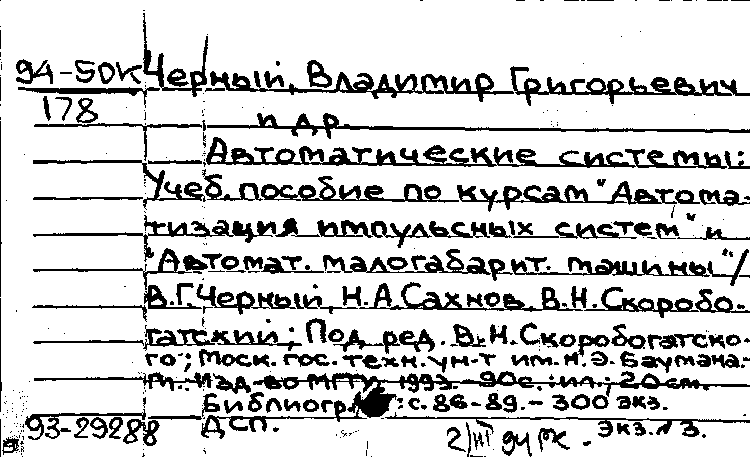 94-50К Черный, Владимир Григорьевич
178
и др.
Автоматические системы:
Учеб. пособие по курсам "Автома-
тизация импульсных систем" и
"Автомат. малогабарит. машины" /
В.Г. Черный, Н.А. Сахнов, В.Н. Скоробо-
гатский; Под ред. В.Н. Скоробогатско-
го; Моск. гос. техн. ун-т им. Н.Э. Баумана.-
М.: Изд-во МГТУ, 1993.-90с.:ил.; 20см.
Библиогр.: с. 86-89.- 300 экз.
93-29288 ДСП.
2) экз. N 3.